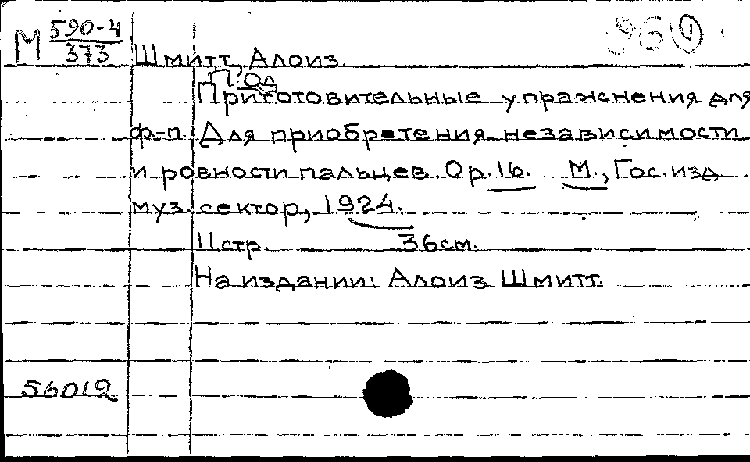 М 590-4
373
960
Шмитт, Алоиз.
Под
Приготовительные упражнения для
ф-п. Для приобретения независимости
и ровности пальцев. Op. 16. М., Гос. изд.
муз. сектор, 1924.
11 стр. 36 см.
На издании: Алоиз Шмитт.
56012